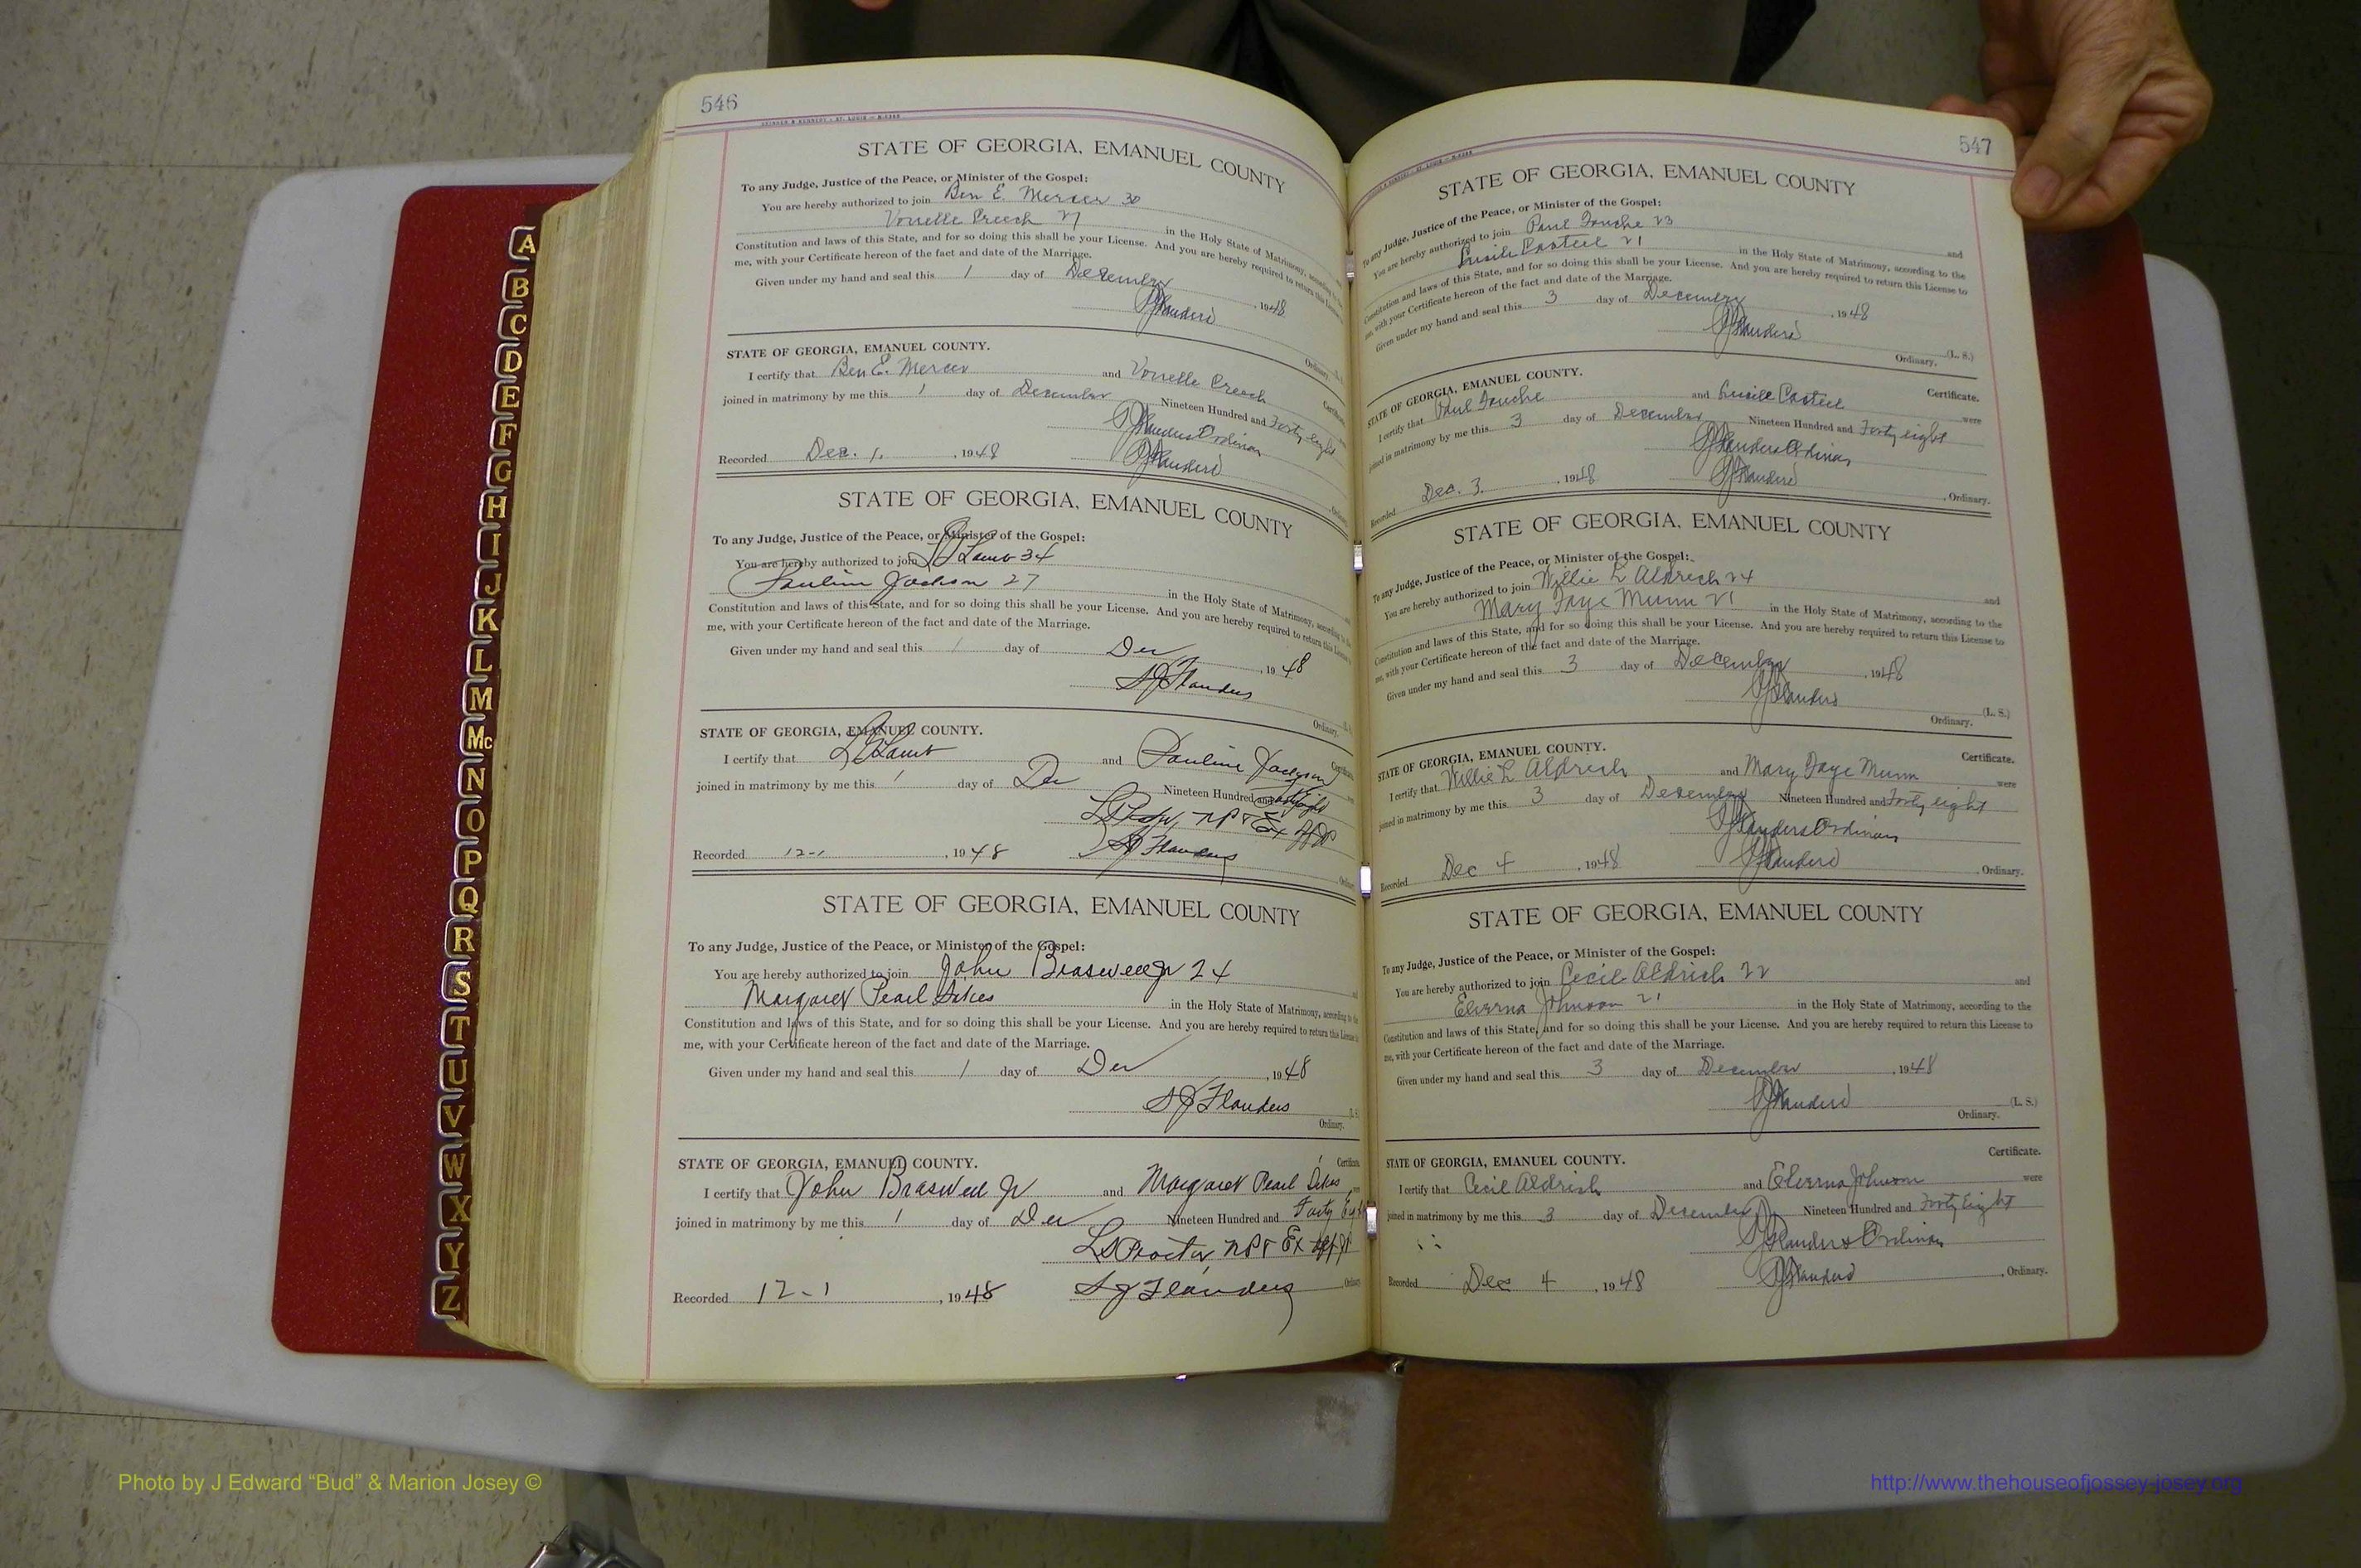 546
STATE OF GEORGIA, EMANUEL COUNTY
To any Judge, Justice of the Peace, or Minister of the Gospel:
You are hereby authorized to join Ben E. Mercer 30
Vonelle Creech 27 in the Holy State of Matrimony, according to the
Constitution and laws of this State, and for so doing this shall be your License. And you are hereby required to return this License
me, with your Certificate hereon of the fact and date of the Marriage.
Given under my hand and seal this 1 day of December, 1948
Flanders
Ordinary.
STATE OF GEORGIA, EMANUEL COUNTY.
Certificate
I certify that Ben E. Mercer and Vonelle Creech
joined in matrimony by me this 1 day of December Nineteen Hundred and Forty eight
Flanders Ordinary
Recorded Dec. 1, 1948 Flanders
STATE OF GEORGIA, EMANUEL COUNTY
To any Judge, Justice of the Peace, or Minister of the Gospel:
You are hereby authorized to join Lamb 34
Pauline Jackson 27 in the Holy State of Matrimony, according to the
Constitution and laws of this State, and for so doing this shall be your License. And you are hereby required to return this License
me, with your Certificate hereon of the fact and date of the Marriage.
Given under my hand and seal this 1 day of Dec, 1948
Flanders
Ordinary.
STATE OF GEORGIA, EMANUEL COUNTY.
I certify that Lamb and Pauline Jackson
joined in matrimony by me this 1 day of Dec Nineteen Hundred and Forty Eight
NP & Ex
Recorded 12-1, 1948 Flanders
STATE OF GEORGIA, EMANUEL COUNTY
To any Judge, Justice of the Peace, or Minister of the Gospel:
You are hereby authorized to join John Braswell Jr 24
Margaret Pearl Sikes in the Holy State of Matrimony, according to the
Constitution and laws of this State, and for so doing this shall be your License. And you are hereby required to return this License
me, with your Certificate hereon of the fact and date of the Marriage.
Given under my hand and seal this 1 day of Dec, 1948
Flanders
Ordinary.
STATE OF GEORGIA, EMANUEL COUNTY.
Certificate
I certify that John Braswell Jr and Margaret Pearl Sikes
joined in matrimony by me this 1 day of Dec Nineteen Hundred and Forty Eight
Proctor NP & Ex
Recorded 12-1, 1948 Flanders
547
STATE OF GEORGIA, EMANUEL COUNTY
To any Judge, Justice of the Peace, or Minister of the Gospel:
You are hereby authorized to join Paul Fouche 23 and
Lucile Casteel 21 in the Holy State of Matrimony, according to the
Constitution and laws of this State, and for so doing this shall be your License. And you are hereby required to return this License to
me, with your Certificate hereon of the fact and date of the Marriage.
Given under my hand and seal this 3 day of December, 1948
Flanders (L. S.)
Ordinary.
STATE OF GEORGIA, EMANUEL COUNTY.
Certificate.
I certify that Paul Fouche and Lucile Casteel were
joined in matrimony by me this 3 day of December Nineteen Hundred and Forty eight
Flanders Ordinary
Recorded Dec. 3, 1948 Flanders, Ordinary.
STATE OF GEORGIA, EMANUEL COUNTY
To any Judge, Justice of the Peace, or Minister of the Gospel:
You are hereby authorized to join Willie L Aldrich 24 and
Mary Faye Munn 21 in the Holy State of Matrimony, according to the
Constitution and laws of this State, and for so doing this shall be your License. And you are hereby required to return this License to
me, with your Certificate hereon of the fact and date of the Marriage.
Given under my hand and seal this 3 day of December, 1948
Flanders (L. S.)
Ordinary.
STATE OF GEORGIA, EMANUEL COUNTY.
Certificate.
I certify that Willie L Aldrich and Mary Faye Munn were
joined in matrimony by me this 3 day of December Nineteen Hundred and Forty eight
Flanders Ordinary
Recorded Dec 4, 1948 Flanders, Ordinary.
STATE OF GEORGIA, EMANUEL COUNTY
To any Judge, Justice of the Peace, or Minister of the Gospel:
You are hereby authorized to join Cecil Aldrich 22 and
Johnson 21 in the Holy State of Matrimony, according to the
Constitution and laws of this State, and for so doing this shall be your License. And you are hereby required to return this License to
me, with your Certificate hereon of the fact and date of the Marriage.
Given under my hand and seal this 3 day of December, 1948
Flanders (L. S.)
Ordinary.
STATE OF GEORGIA, EMANUEL COUNTY.
Certificate.
I certify that Cecil Aldrich and Johnson were
joined in matrimony by me this 3 day of December, Nineteen Hundred and Forty Eight
Flanders Ordinary
Recorded Dec 4, 1948 Flanders, Ordinary.
A
B
C
D
E
F
G
H
I
J
K
L
M
Mc
N
O
P
Q
R
S
T
U
V
W
X
Y
Z
Photo by J Edward “Bud” & Marion Josey ©
http://www.thehouseofjossey-josey.org